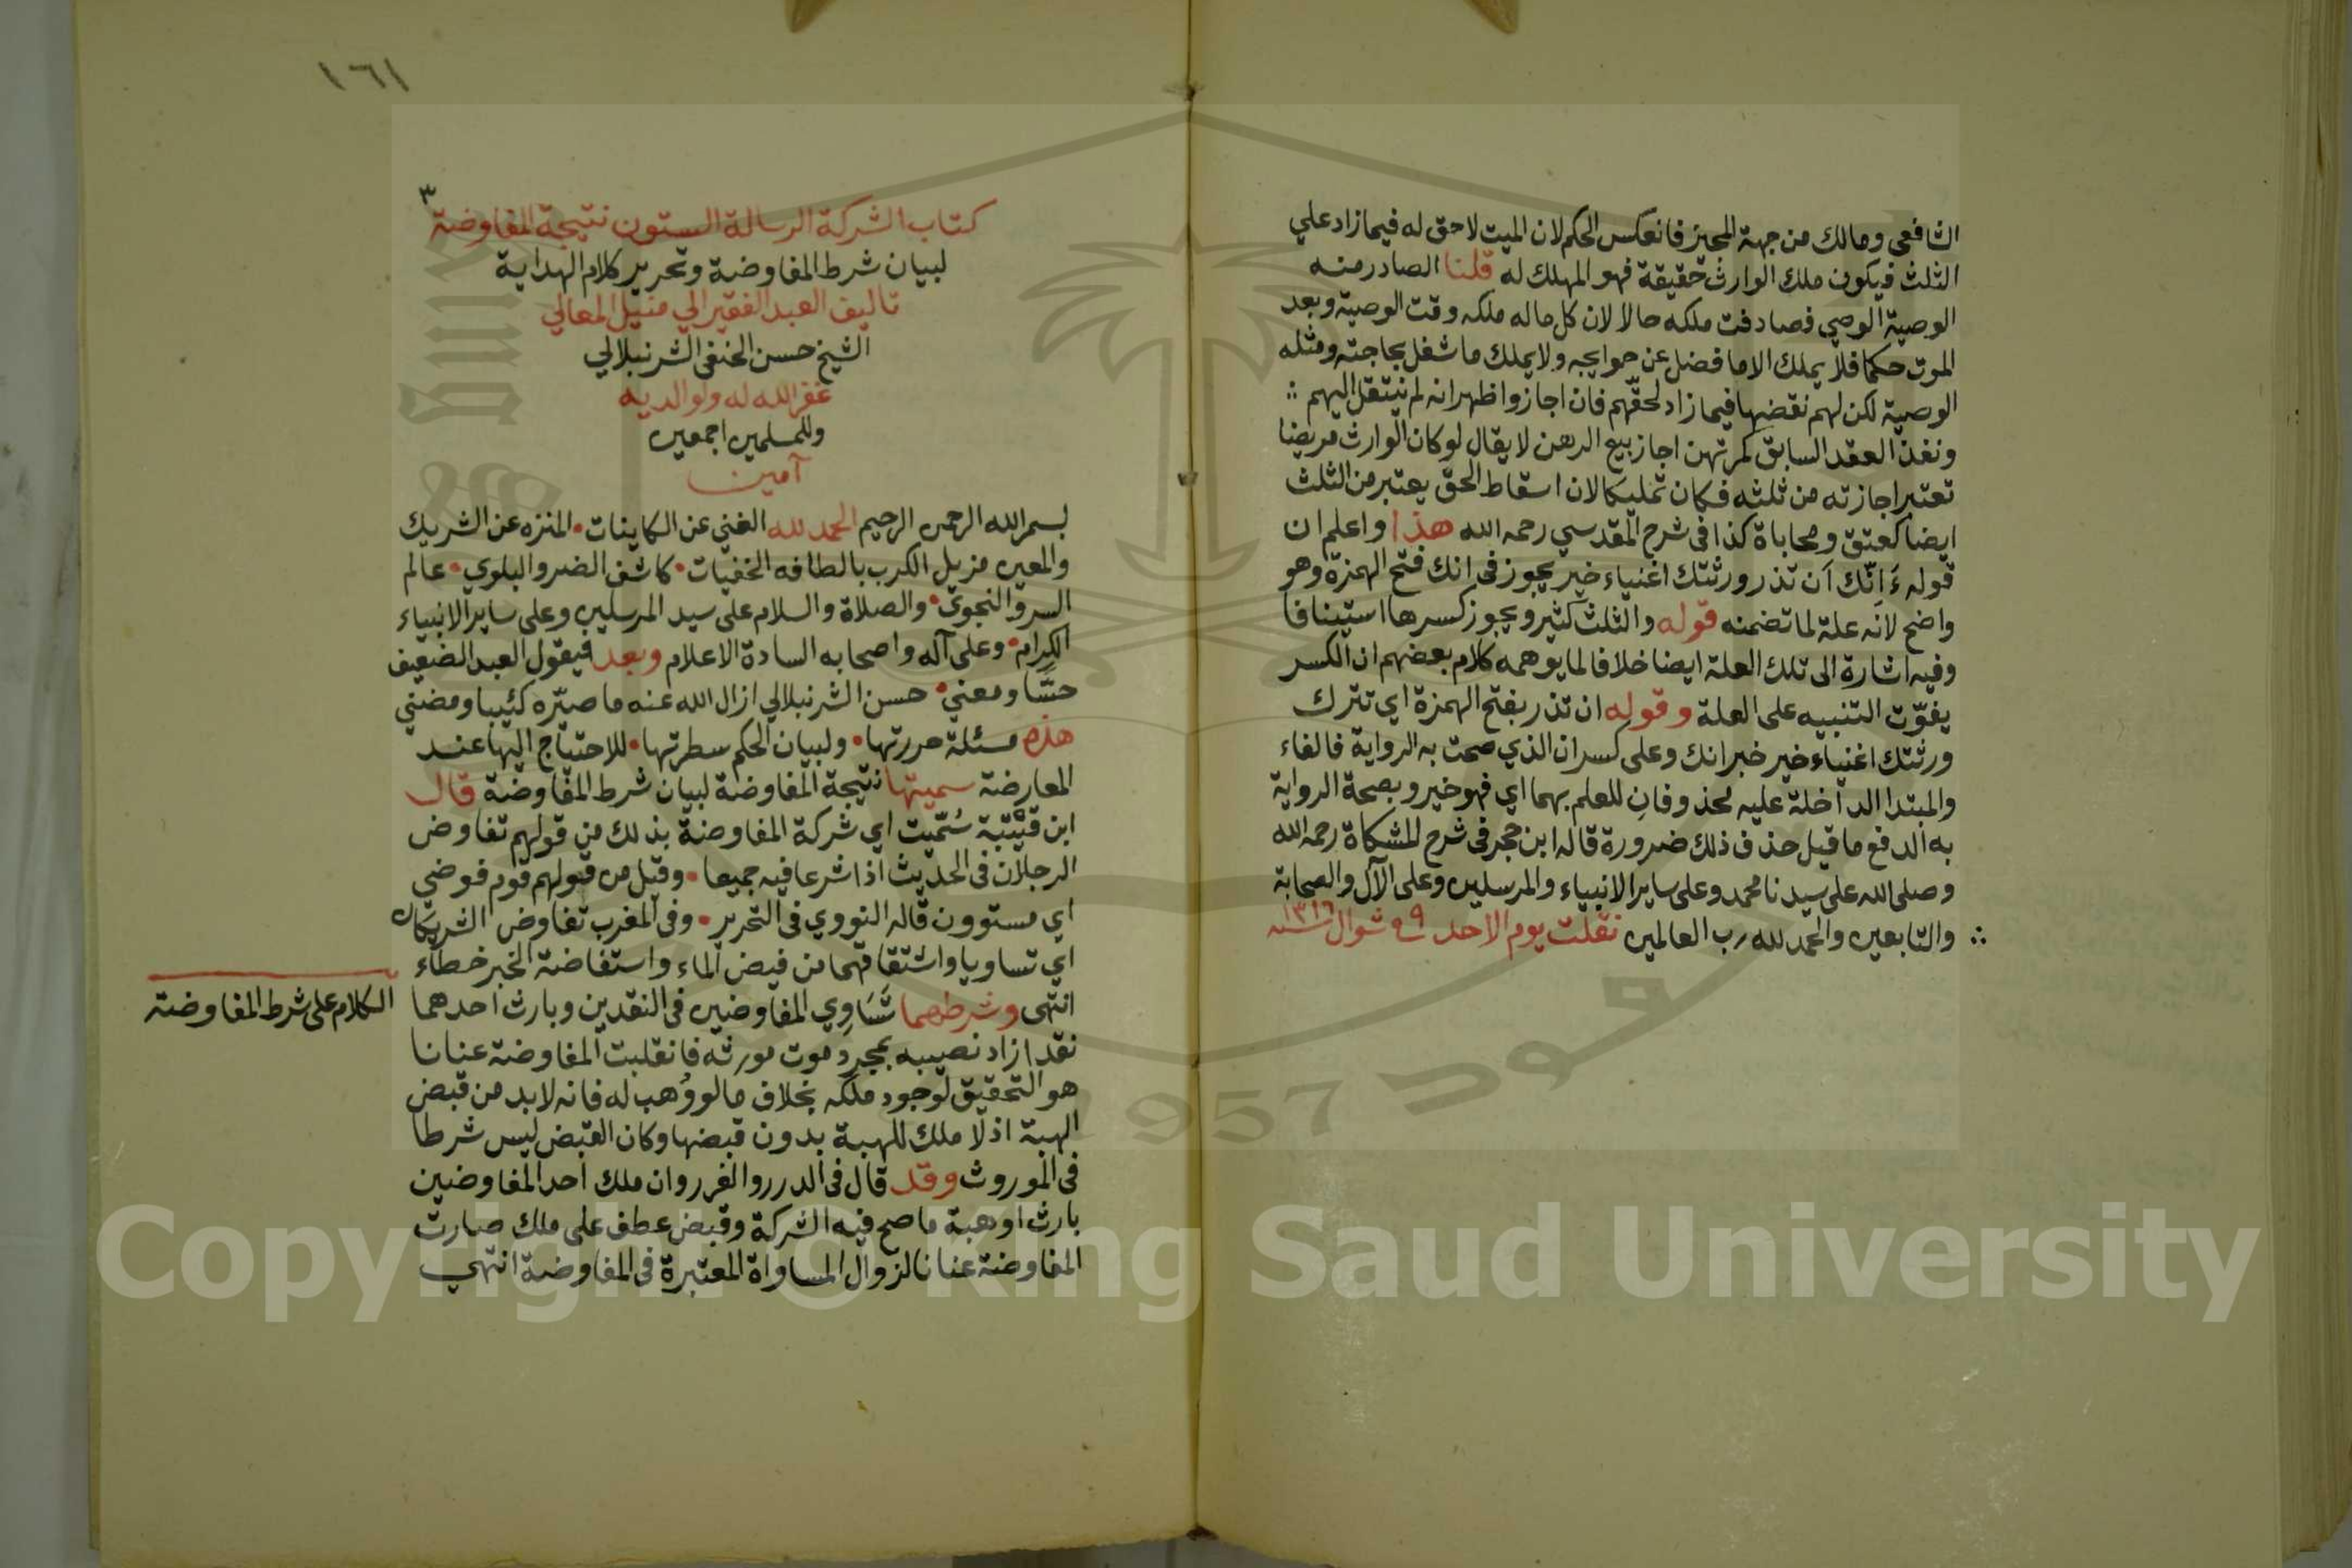 الشافعى ومالك من جهة المجيز فانعكس الحكم لان الميت لا حق له فيما زاد علي
الثلث فيكون ملك الوارث حقيقة فهو المهلك له قلنا الصادر منه
الوصية الوصي فصادفت ملكه حالا لان كل ماله ملكه وقت الوصية وبعد
الموت حكما فلا يملك الا ما فضل عن حوايجه ولا يملك ما شغل بحاجته ومثله
الوصية لكن لهم نقضها فيما زاد لحقّهم فان اجازوا ظهر انه لم ينتقل اليهم
ونفذ العقد السابق كمرتهن اجاز بيع الرهن لا يقال لو كان الوارث مريضا
تعتبر اجازته من ثلثه فكان تمليكا لان اسقاط الحق يعتبر من الثلث
ايضا كعتق ومحاباة كذا فى شرح المقدسي رحمه الله هذا واعلم ان
قوله انّك أن تذر ورثتك اغنياء خير يجوز فى انك فتح الهمزة وهو
واضح لانه علة لما تضمنه قوله والثلث كثير ويجوز كسرها استينافا
وفيه اشارة الى تلك العلة ايضا خلافا لما يوهمه كلام بعضهم ان الكسر
يفوّت التنبيه على العلة وقوله ان تذر بفتح الهمزة اي تترك
ورثتك اغنياء خير خبر انك وعلى كسر ان الذي صحت به الرواية فالفاء
والمبتدا الداخلة عليه محذوفان للعلم بهما اي فهو خير وبصحة الرواية
به اندفع ما قيل حذف ذلك ضرورة قاله ابن حجر فى شرح المشكاة رحمه الله
وصلى الله على سيدنا محمد وعلى ساير الانبياء والمرسلين وعلى الآل والصحابة
والتابعين والحمد لله رب العالمين نقلت يوم الاحد ٩ شوال سنه ١٣١٦
١٦١
٣
كتاب الشركة الرسالة الستون نتيجة المفاوضة
لبيان شرط المفاوضة وتحرير كلام الهداية
تاليف العبد الفقير الي منيل المعالي
الشيخ حسن الحنفى الشرنبلالي
غفر الله له ولوالديه
وللمسلمين اجمعين
آمين
بسم الله الرحمن الرحيم الحمد لله الغني عن الكاينات • المنزه عن الشريك
والمعين مزيل الكرب بالطافه الخفيات • كاشف الضر والبلوي • عالم
السر والنجوي • والصلاة والسلام على سيد المرسلين وعلى ساير الانبياء
الكرام • وعلى آله واصحابه السادة الاعلام وبعد فيقول العبد الضعيف
حسًّا ومعني • حسن الشرنبلالي ازال الله عنه ما صيّره كئيبا ومضني
هذه مسئلة حررتها • ولبيان الحكم سطرتها • للاحتياج اليها عند
المعارضة سميتها نتيجة المفاوضة لبيان شرط المفاوضة قال
ابن قتيبة سُمّيت اي شركة المفاوضة بذلك من قولهم تفاوض
الرجلان فى الحديث اذا شرعا فيه جميعا • وقيل من قولهم قوم فوضي
اي مستوون قاله النووي فى التحرير • وفى المغرب تفاوض الشريكان
اي تساويا واشتقاقهما من فيض الماء واستفاضة الخبر خطاء
انتهى وشرطهما تَسَاوِي المفاوضين فى النقدين وبارث احدهما
نقدا زاد نصيبه بمجرد موت مورثه فانقلبت المفاوضة عنانا
هو التحقيق لوجود ملكه بخلاف ما لو وُهب له فانه لا بد من قبض
الهبة اذ لا ملك للهبة بدون قبضها وكان القبض ليس شرطا
فى الموروث وقد قال فى الدرر والغرر وان ملك احد المفاوضين
بارث او هبة ما صح فيه الشركة وقبض عطف على ملك صارت
المفاوضة عنانا لزوال المساواة المعتبرة فى المفاوضة انتهي
الكلام على شرط المفاوضة
1957
Copyright © King Saud University